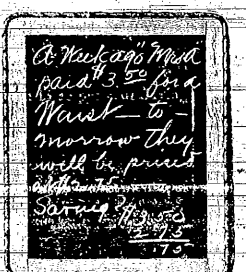 A Week ago Miss A
paid $3.50 for a
Waist — to
morrow they
will be priced
Saving? $3.50
2.75
.75